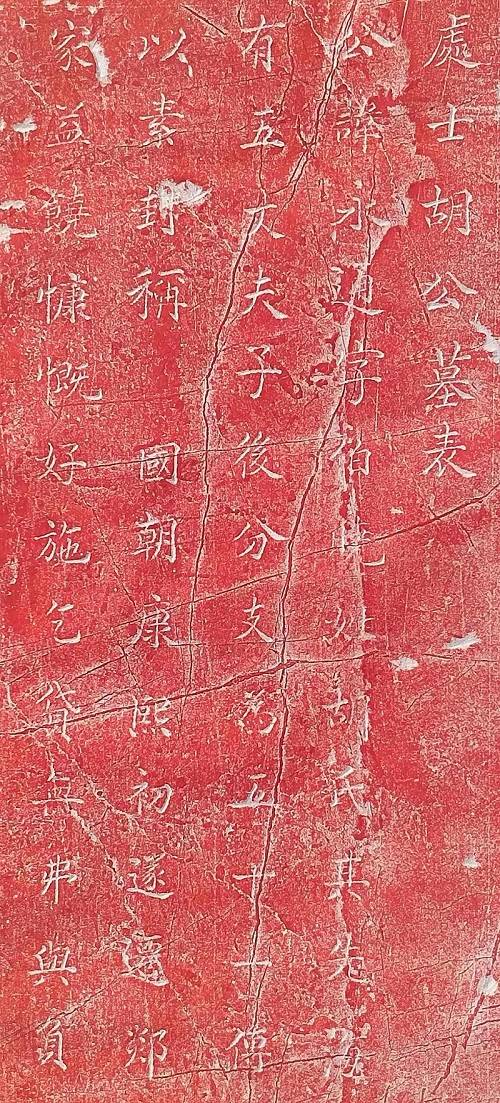 處士胡公墓表
公諱永迥字柏 姓胡氏其先
有五大夫子後分支為五十一傳
以素封稱 國朝康熙初遂遷鄰
家益饒慷慨好施乞貸無弗與負